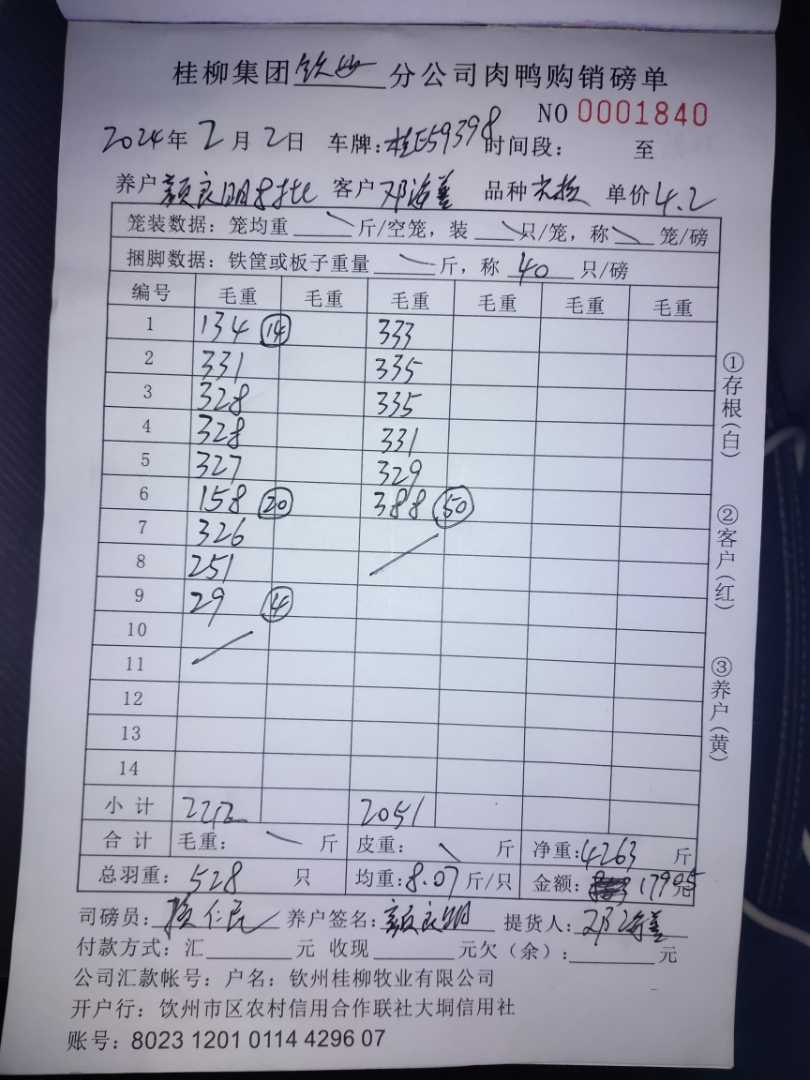 桂柳集团钦州分公司肉鸭购销磅单
NO 0001840
2024年2月2日 车牌:桂E59398 时间段: 至
养户颜良明8批 客户邓海 品种 单价4.2
笼装数据: 笼均重 斤/空笼, 装 只/笼, 称 笼/磅
捆脚数据: 铁筐或板子重量 斤, 称 40 只/磅
编号 毛重 毛重 毛重 毛重 毛重 毛重
1 134 14 333
2 331 335
3 328 335
4 328 331
5 327 329
6 158 20 388 50
7 326
8 251
9 29 4
10
11
12
13
14
小计 2212 2051
合计 毛重: 斤 皮重: 斤 净重:4263 斤
总羽重: 528 只 均重:8.07斤/只 金额: 17905元
司磅员: 仁民 养户签名:颜良明 提货人:邓海
付款方式: 汇 元 收现 元欠(余): 元
公司汇款帐号: 户名: 钦州桂柳牧业有限公司
开户行: 饮州市区农村信用合作联社大垌信用社
账号: 8023 1201 0114 4296 07
①存根(白)
②客户(红)
③养户(黄)